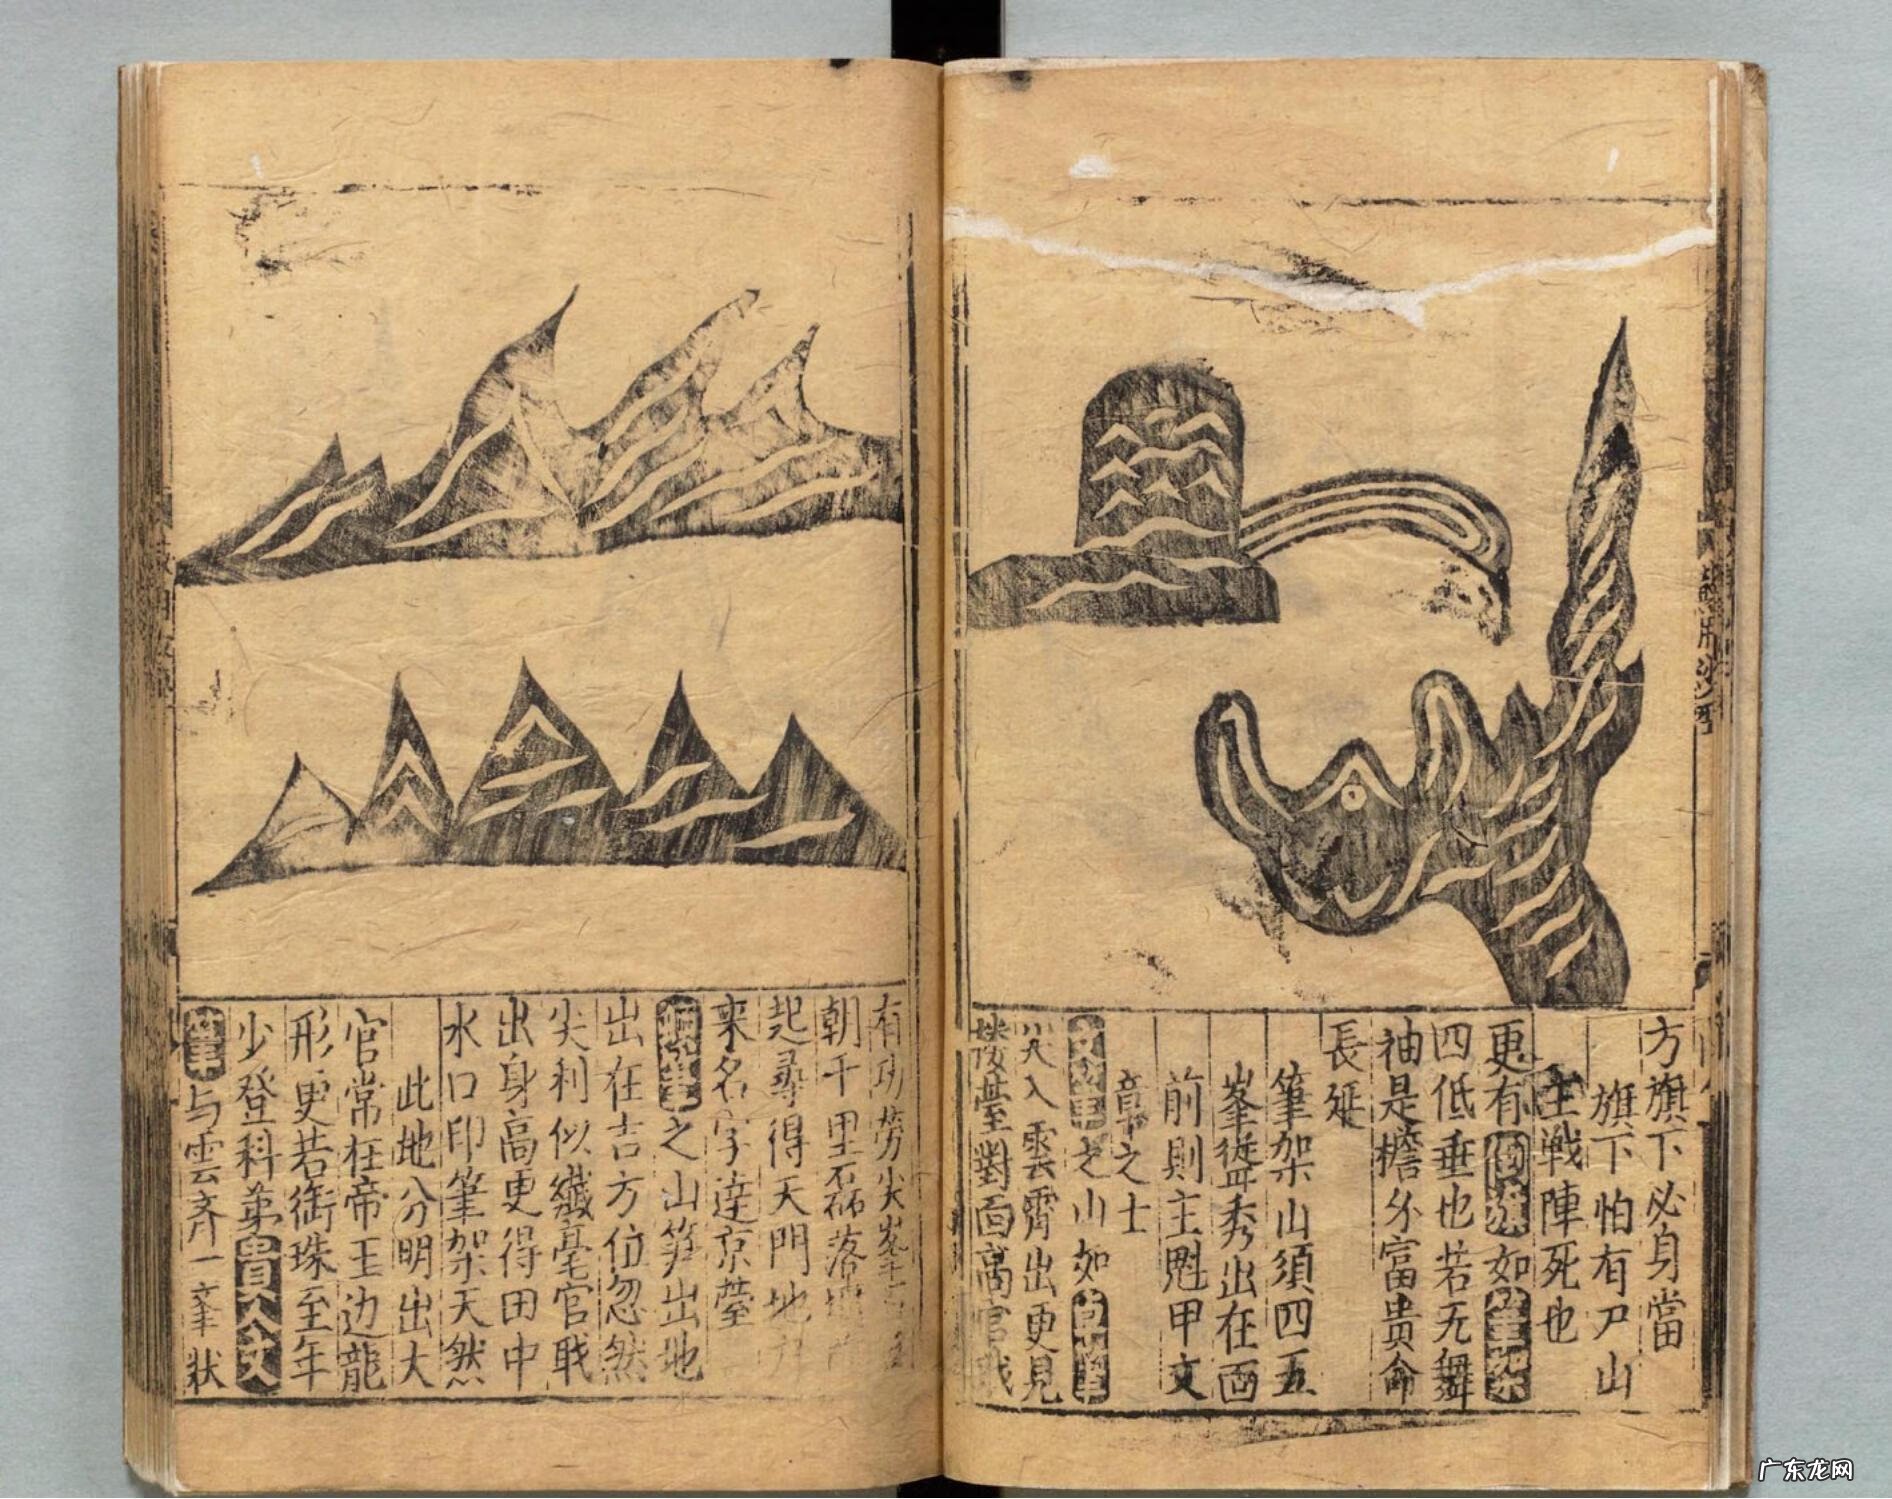 方旗下必身當
旗下怕有尸山
主戦陣死也
更有
如
四低垂也若无舞
袖是檐外富贵命
長延
筆架山須四五
峯聳秀出在面
前則主魁甲文
章之士
之山如
尖入雲霄出更見
對面高官
有功劳尖峯
朝千里磊落
起尋得天門地
來名字達京瑩
之山笋出地
出在吉方位忽然
尖利似纖毫官戢
出身高更得田中
水口印筆架天然
此地分明出大
官常在帝王边龍
形更若街珠至年
少登科第
与雲齐一峯狀
广东龙网